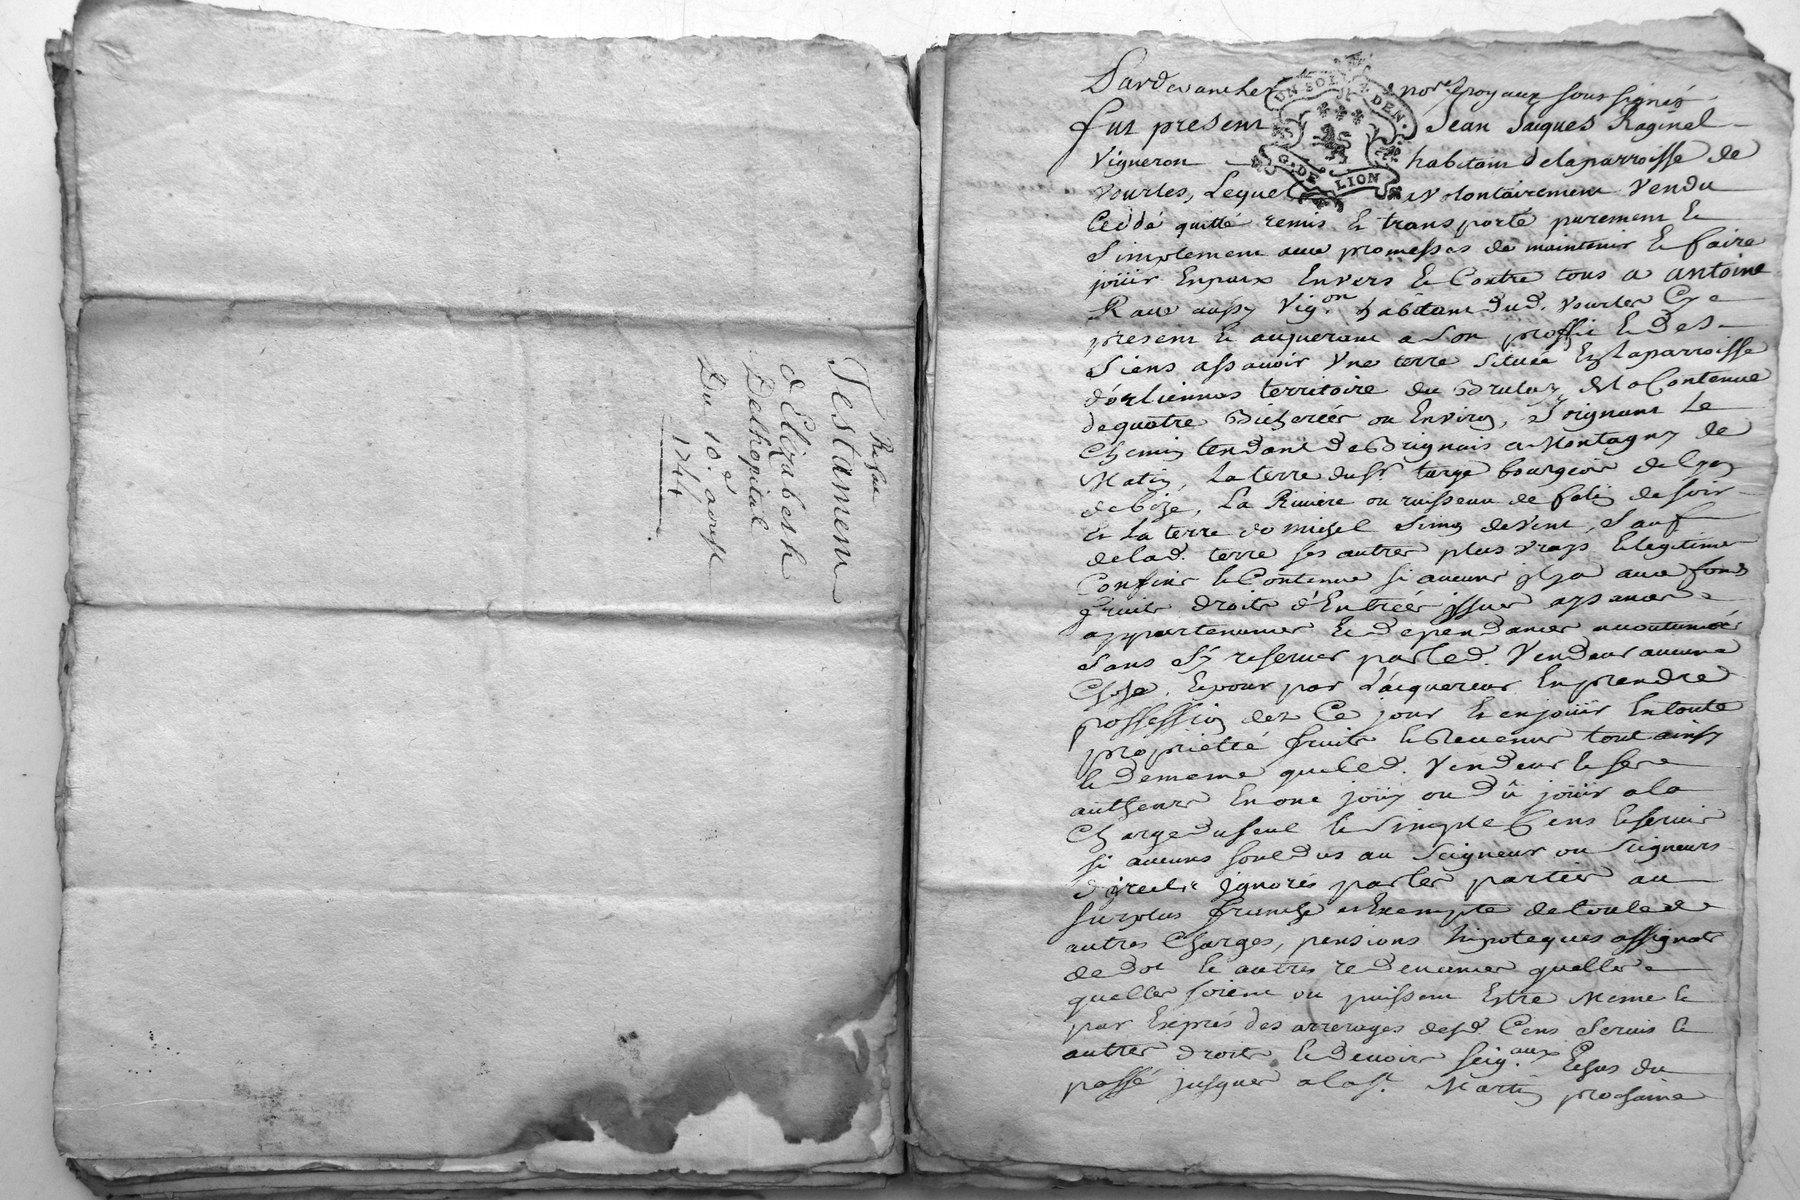 Refait
Testament
d'Elizabeth
Delhopital
Du 10e aoust
1744
Pardevant les no.res Royaux soussignés
UN SOL 4. DEN.
G. DE LION
fut present Jean Jacques Raginel
Vigneron habitant delaparroisse de
Vourles, Lequel a volontairement Vendu
Ceddé quitté remis & transporté purement &
Simplement avec promesses de maintenir & faire
joüir Enpaix Envers & Contre tous a antoine
Rave aussy Vig.on habitant dud. Vourles Cy
present & acquerant a Son proffit & des
Siens assavoir Une terre Située En Laparroisse
d'orliennas territoire du Brulay, de la Contenue
dequatre Bicherées ou Environ, Joignant Le
Chemin tendant de Brignais a Montagny de
Matin, La terre du Sr. targe bourgeois de Lyon
de bize, La Riviere ou ruisseau de folin de soir
& La terre de Michel Simon de Vent, Sauf
delad. terre ses autres plus vrays & legitimes
Confins & Contenue si aucuns il y a avec fonds
fruits droits d'Entrées issues aysances
appartenances & dependances accoutumées
Sans S'y reserver parled. Vendeur aucune
Chose. & pour par L'acquereur En prendre
possession dez Ce jour & en joüir En toute
proprieté fruits & Revenus tout ainsy
& de meme que led. Vendeur & ses
autheurs En ont joüy ou dû joüir a la
Charge du seul & Simple Cens & servis
si aucuns sont dus au Seigneur ou Seigneurs
directs ignorés par les parties au
surplus franche & Exempte de toutes
autres Charges, pensions hipoteques assignats
de dot & autres redevances quelles
quelles soient ou puissent Estre Meme &
par Exprés des arrerages desd. Cens Servis &
autres droits & devoirs seig.aux Echus du
passé jusques a la St. Martin prochaine